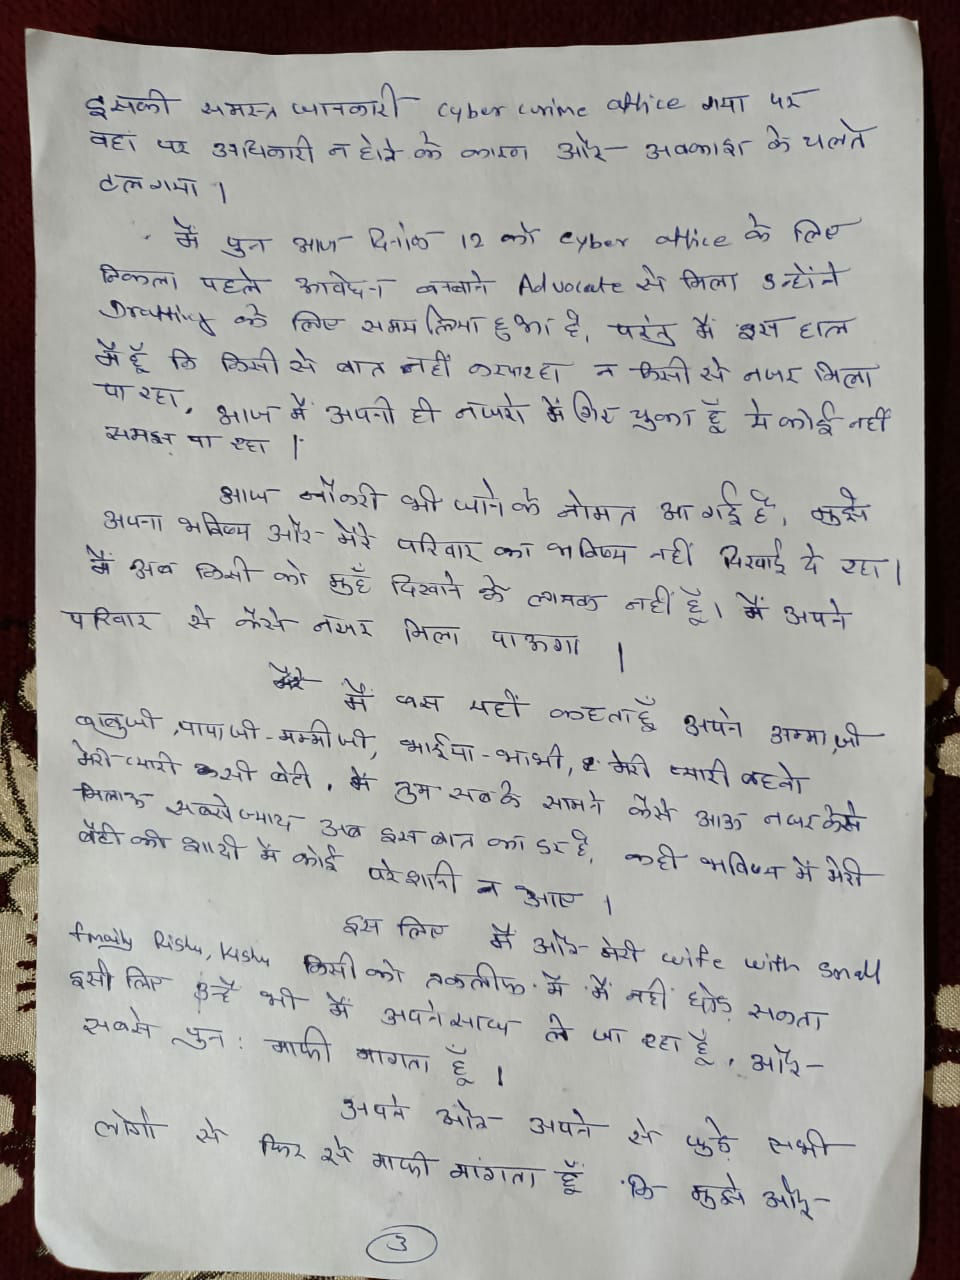 इसकी समस्त जानकारी cyber crime office गया पर
वहां पर अधिकारी न होने के कारण और अवकाश के चलते
टल गया।
मैं पुन आज दिनांक 12 को cyber office के लिए
निकला पहले आवेदन बनवाने Advocate से मिला उन्होंने
Drafting के लिए समय लिया हुआ है, परंतु मैं इस हाल
में हूँ कि किसी से बात नहीं कर पा रहा न किसी से नजर मिला
पा रहा, आज मैं अपनी ही नजरो में गिर चुका हूँ ये कोई नहीं
समझ पा रहा।
आज नौकरी भी जाने के नोमत आ गई है, मुझे
अपना भविष्य और मेरे परिवार का भविष्य नहीं दिखाई दे रहा।
मैं अब किसी को मुहँ दिखाने के लायक नहीं हूँ। मैं अपने
परिवार से कैसे नजर मिला पाऊगा।
मैं बस यहीं कहता हूँ अपने अम्मा जी
बाबुजी, पापाजी-मम्मीजी, भाईया-भाभी, मेरी प्यारी बहनो
मेरी प्यारी सी बेटी, मैं तुम सब के सामने कैसे आऊ नजर कैसे
मिलाऊ सबसे ज्यादा अब इस बात का डर है, कही भविष्य में मेरी
बेटी की शादी में कोई परेशानी न आए।
इस लिए मैं और मेरी wife with small
fmaily Rishu, Kishu किसी को तकलीफ में मैं नहीं छोड़ सकता
इसी लिए उन्हें भी मैं अपने साथ ले जा रहा हूँ, और
सबसे पुन: माफी मागता हूँ।
अपने और अपने से जुड़े सभी
लोगो से फिर से माफी मांगता हूँ कि मुझे और
3